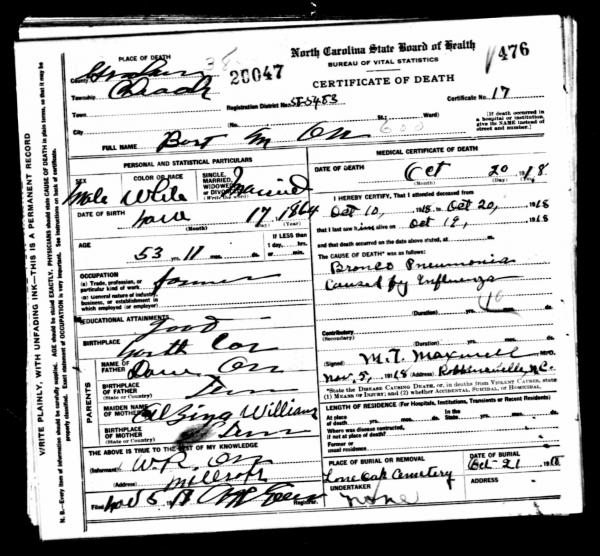 North Carolina State Board of Health
BUREAU OF VITAL STATISTICS
476
PLACE OF DEATH
County Graham
38
20047
CERTIFICATE OF DEATH
Township Cheoah
Registration District No. 38-5483
Certificate No. 17
Town
City (No. St.; Ward)
(If death occurred in a hospital or institution, give its NAME instead of street and number.)
FULL NAME Bert M Orr
PERSONAL AND STATISTICAL PARTICULARS
SEX
Male
COLOR OR RACE
White
SINGLE, MARRIED, WIDOWED, OR DIVORCED
(Write the word)
Married
DATE OF BIRTH
Nov 17 1864
(Month) (Day) (Year)
AGE
53 yrs. 11 mos. ds.
If LESS than
1 day, hrs.
or min.
OCCUPATION
(a) Trade, profession, or particular kind of work
farmer
(b) General nature of industry, business, or establishment in which employed (or employer)
EDUCATIONAL ATTAINMENTS
Good
BIRTHPLACE
North Car
PARENTS
NAME OF FATHER
Orr
BIRTHPLACE OF FATHER
(State or Country)
Tenn
MAIDEN NAME OF MOTHER
Williams
BIRTHPLACE OF MOTHER
(State or Country)
Tenn
THE ABOVE IS TRUE TO THE BEST OF MY KNOWLEDGE
(Informant) W.R. Orr
(Address)
Filed Nov 5 18
Registrar
MEDICAL CERTIFICATE OF DEATH
DATE OF DEATH
Oct 20 1918
(Month) (Day) (Yr.)
I HEREBY CERTIFY, That I attended deceased from
Oct 10, 1918 to Oct 20, 1918
that I last saw him alive on Oct 19, 1918
and that death occurred on the date above stated, at m.
The CAUSE OF DEATH* was as follows:
Bronco Pneumonia
Caused by Influenza
10
(Duration) yrs. mos. ds.
Contributory
(Secondary)
(Duration) yrs. mos. ds.
(Signed) M.T. Maxwell M.D.
Nov, 5, 1918 (Address) Robbinsville, N.C.
*State the DISEASE CAUSING DEATH, or, in deaths from VIOLENT CAUSES, state
(1) MEANS OF INJURY; and (2) whether ACCIDENTAL, SUICIDAL, or HOMICIDAL.
LENGTH OF RESIDENCE (For Hospitals, Institutions, Transients or Recent Residents)
At place of death yrs. mos. ds. In the State yrs. mos. ds.
Where was disease contracted, if not at place of death?
Former or usual residence
PLACE OF BURIAL OR REMOVAL
Lone Oak Cemetery
DATE OF BURIAL
Oct-21 1918
UNDERTAKER
None
ADDRESS
WRITE PLAINLY, WITH UNFADING INK—THIS IS A PERMANENT RECORD
N. B.—Every item of information should be carefully supplied. AGE should be stated EXACTLY. PHYSICIANS should state CAUSE OF DEATH in plain terms, so that it may be properly classified. Exact statement of OCCUPATION is very important. See instructions on back of certificate.